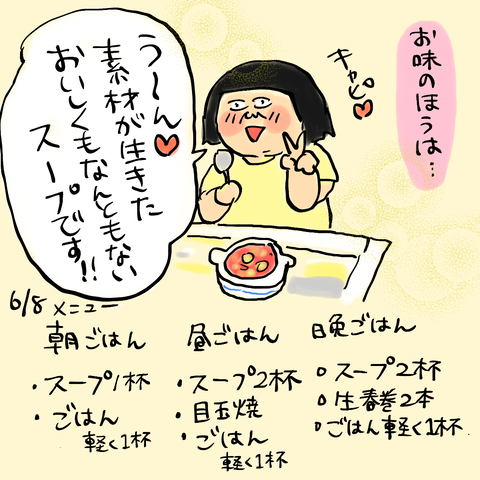 お味のほうは…
キャピ♥
う〜ん♥
素材が生きた
おいしくもなんともない
スープです!!
6/8 メニュー
朝ごはん
・スープ1杯
・ごはん
軽く1杯
昼ごはん
・スープ2杯
・目玉焼
・ごはん
軽く1杯
晩ごはん
○スープ2杯
○生春巻2本
○ごはん軽く1杯